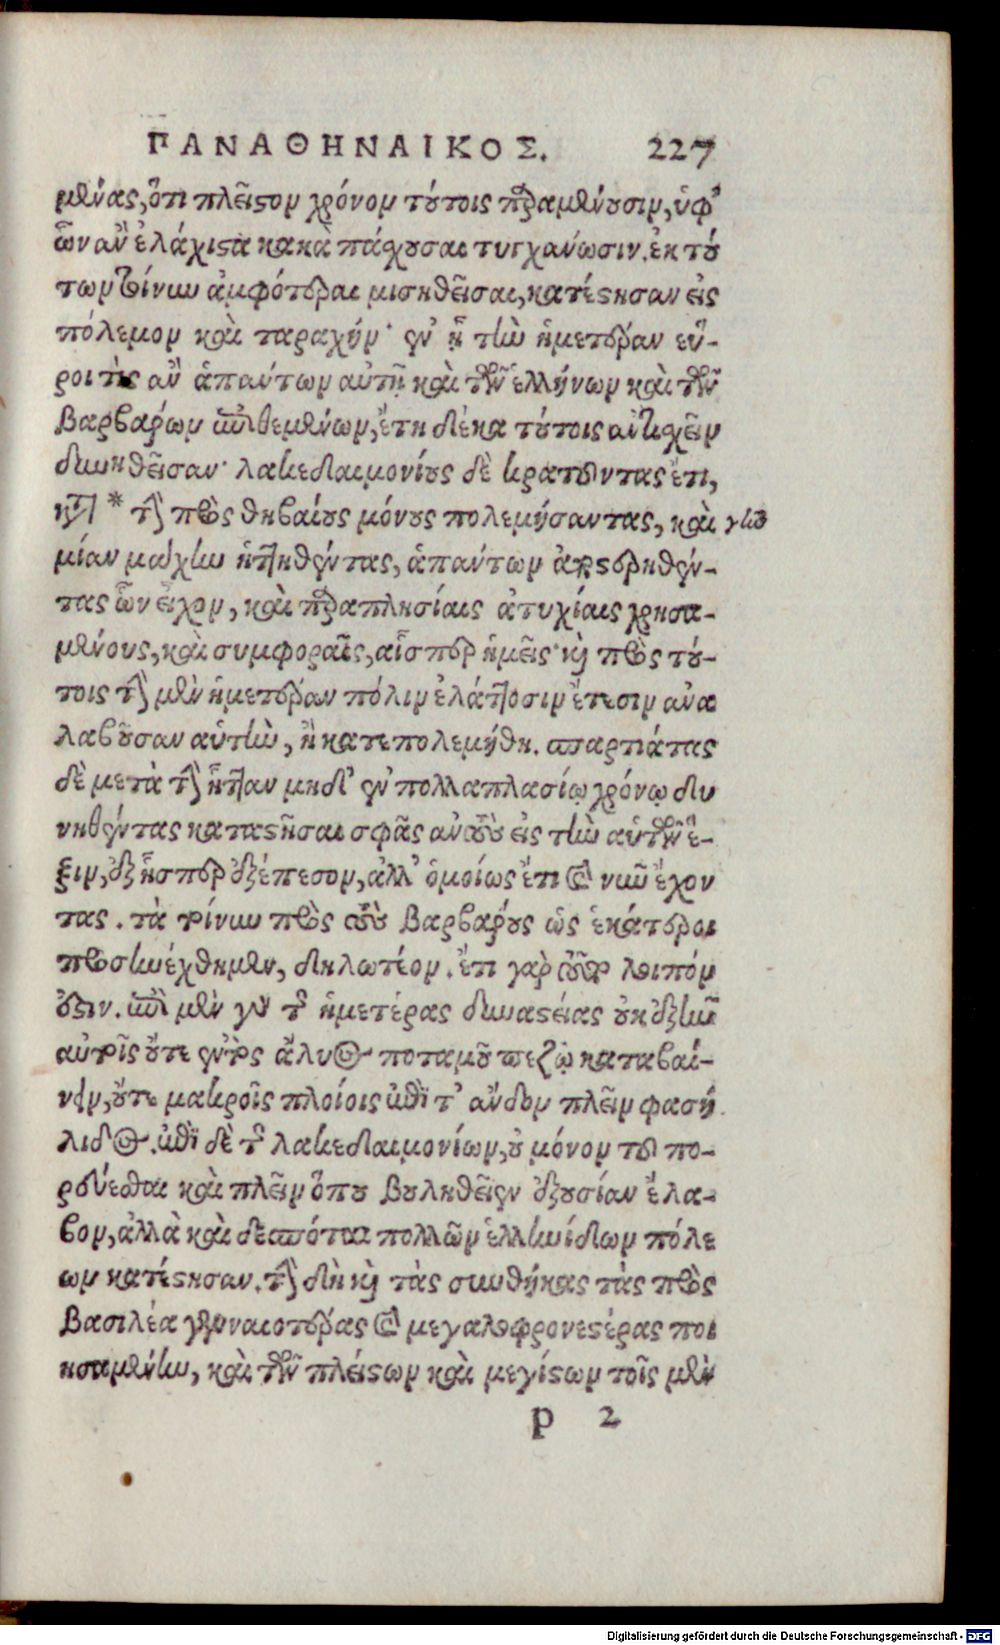 ΠΑΝΑΘΗΝΑΙΚΟΣ. 227
μένας, ὅτι πλεῖστον χρόνον τούτοις παραμένουσιν, ὑφ᾽
ὧν ἂν ἐλάχιστα κακὰ πάσχουσαι τυγχάνωσιν. ἐκ τού
των τοίνυν ἀμφότεραι μισηθεῖσαι, κατέστησαν εἰς
πόλεμον καὶ ταραχήν· ἐν ᾗ τὴν ἡμετέραν εὕ-
ροι τὶς ἂν ἁπάντων αὐτῇ καὶ τῶν ἑλλήνων καὶ τῶν
βαρβάρων ἐπιθεμένων, ἔτη δέκα τούτοις ἀντισχεῖν
δυνηθεῖσαν· λακεδαιμονίους δὲ κρατοῦντας ἔτι,
κατὰ * τὴν πρὸς θηβαίους μόνους πολεμήσαντας, καὶ γῆν
μίαν μάχην ἡττηθέντας, ἁπάντων ἀποστερηθέν-
τας ὧν εἶχον, καὶ παραπλησίαις ἀτυχίαις χρησα-
μένους, καὶ συμφοραῖς, αἷσπερ ἡμεῖς· καὶ πρὸς τού-
τοις τὴν μὲν ἡμετέραν πόλιν ἐλάττοσιν ἔτεσιν ἀνα
λαβοῦσαν αὑτὴν, ἢ κατεπολεμήθη. σπαρτιάτας
δὲ μετὰ τὴν ἧτταν μηδ᾽ ἐν πολλαπλασίῳ χρόνῳ δυ
νηθέντας καταστῆσαι σφᾶς αὐτοὺς εἰς τὴν αὐτὴν ἕ-
ξιν, ἐξ ἧσπερ ἐξέπεσον, ἀλλ᾽ ὁμοίως ἔτι καὶ νῦν ἔχον
τας. τὰ τοίνυν πρὸς τοὺς βαρβάρους ὡς ἑκάτεροι
προσηνέχθημεν, δηλωτέον. ἔτι γὰρ τοῦτο λοιπόν
ἐστιν. ἐπὶ μὲν γὰρ τῆς ἡμετέρας δυναστείας οὐκ ἐξῆν
αὐτοῖς οὔτε ἐντὸς ἅλυος ποταμοῦ πεζῷ καταβαί-
νειν, οὔτε μακροῖς πλοίοις ἐπὶ τ᾽ ἄνδον πλεῖν φασή
λιδος. ἐπὶ δὲ τῆς λακεδαιμονίων, οὐ μόνον τοῦ πο-
ρεύεσθαι καὶ πλεῖν ὅπου βουληθεῖεν ἐξουσίαν ἔλα-
βον, ἀλλὰ καὶ δεσπόται πολλῶν ἑλληνίδων πόλε
ων κατέστησαν. τὴν δὴ καὶ τὰς συνθήκας τὰς πρὸς
βασιλέα γενναιοτέρας καὶ μεγαλοφρονεστέρας ποι
ησαμένην, καὶ τῶν πλείστων καὶ μεγίστων τοῖς μὲν
p 2
Digitalisierung gefördert durch die Deutsche Forschungsgemeinschaft - DFG